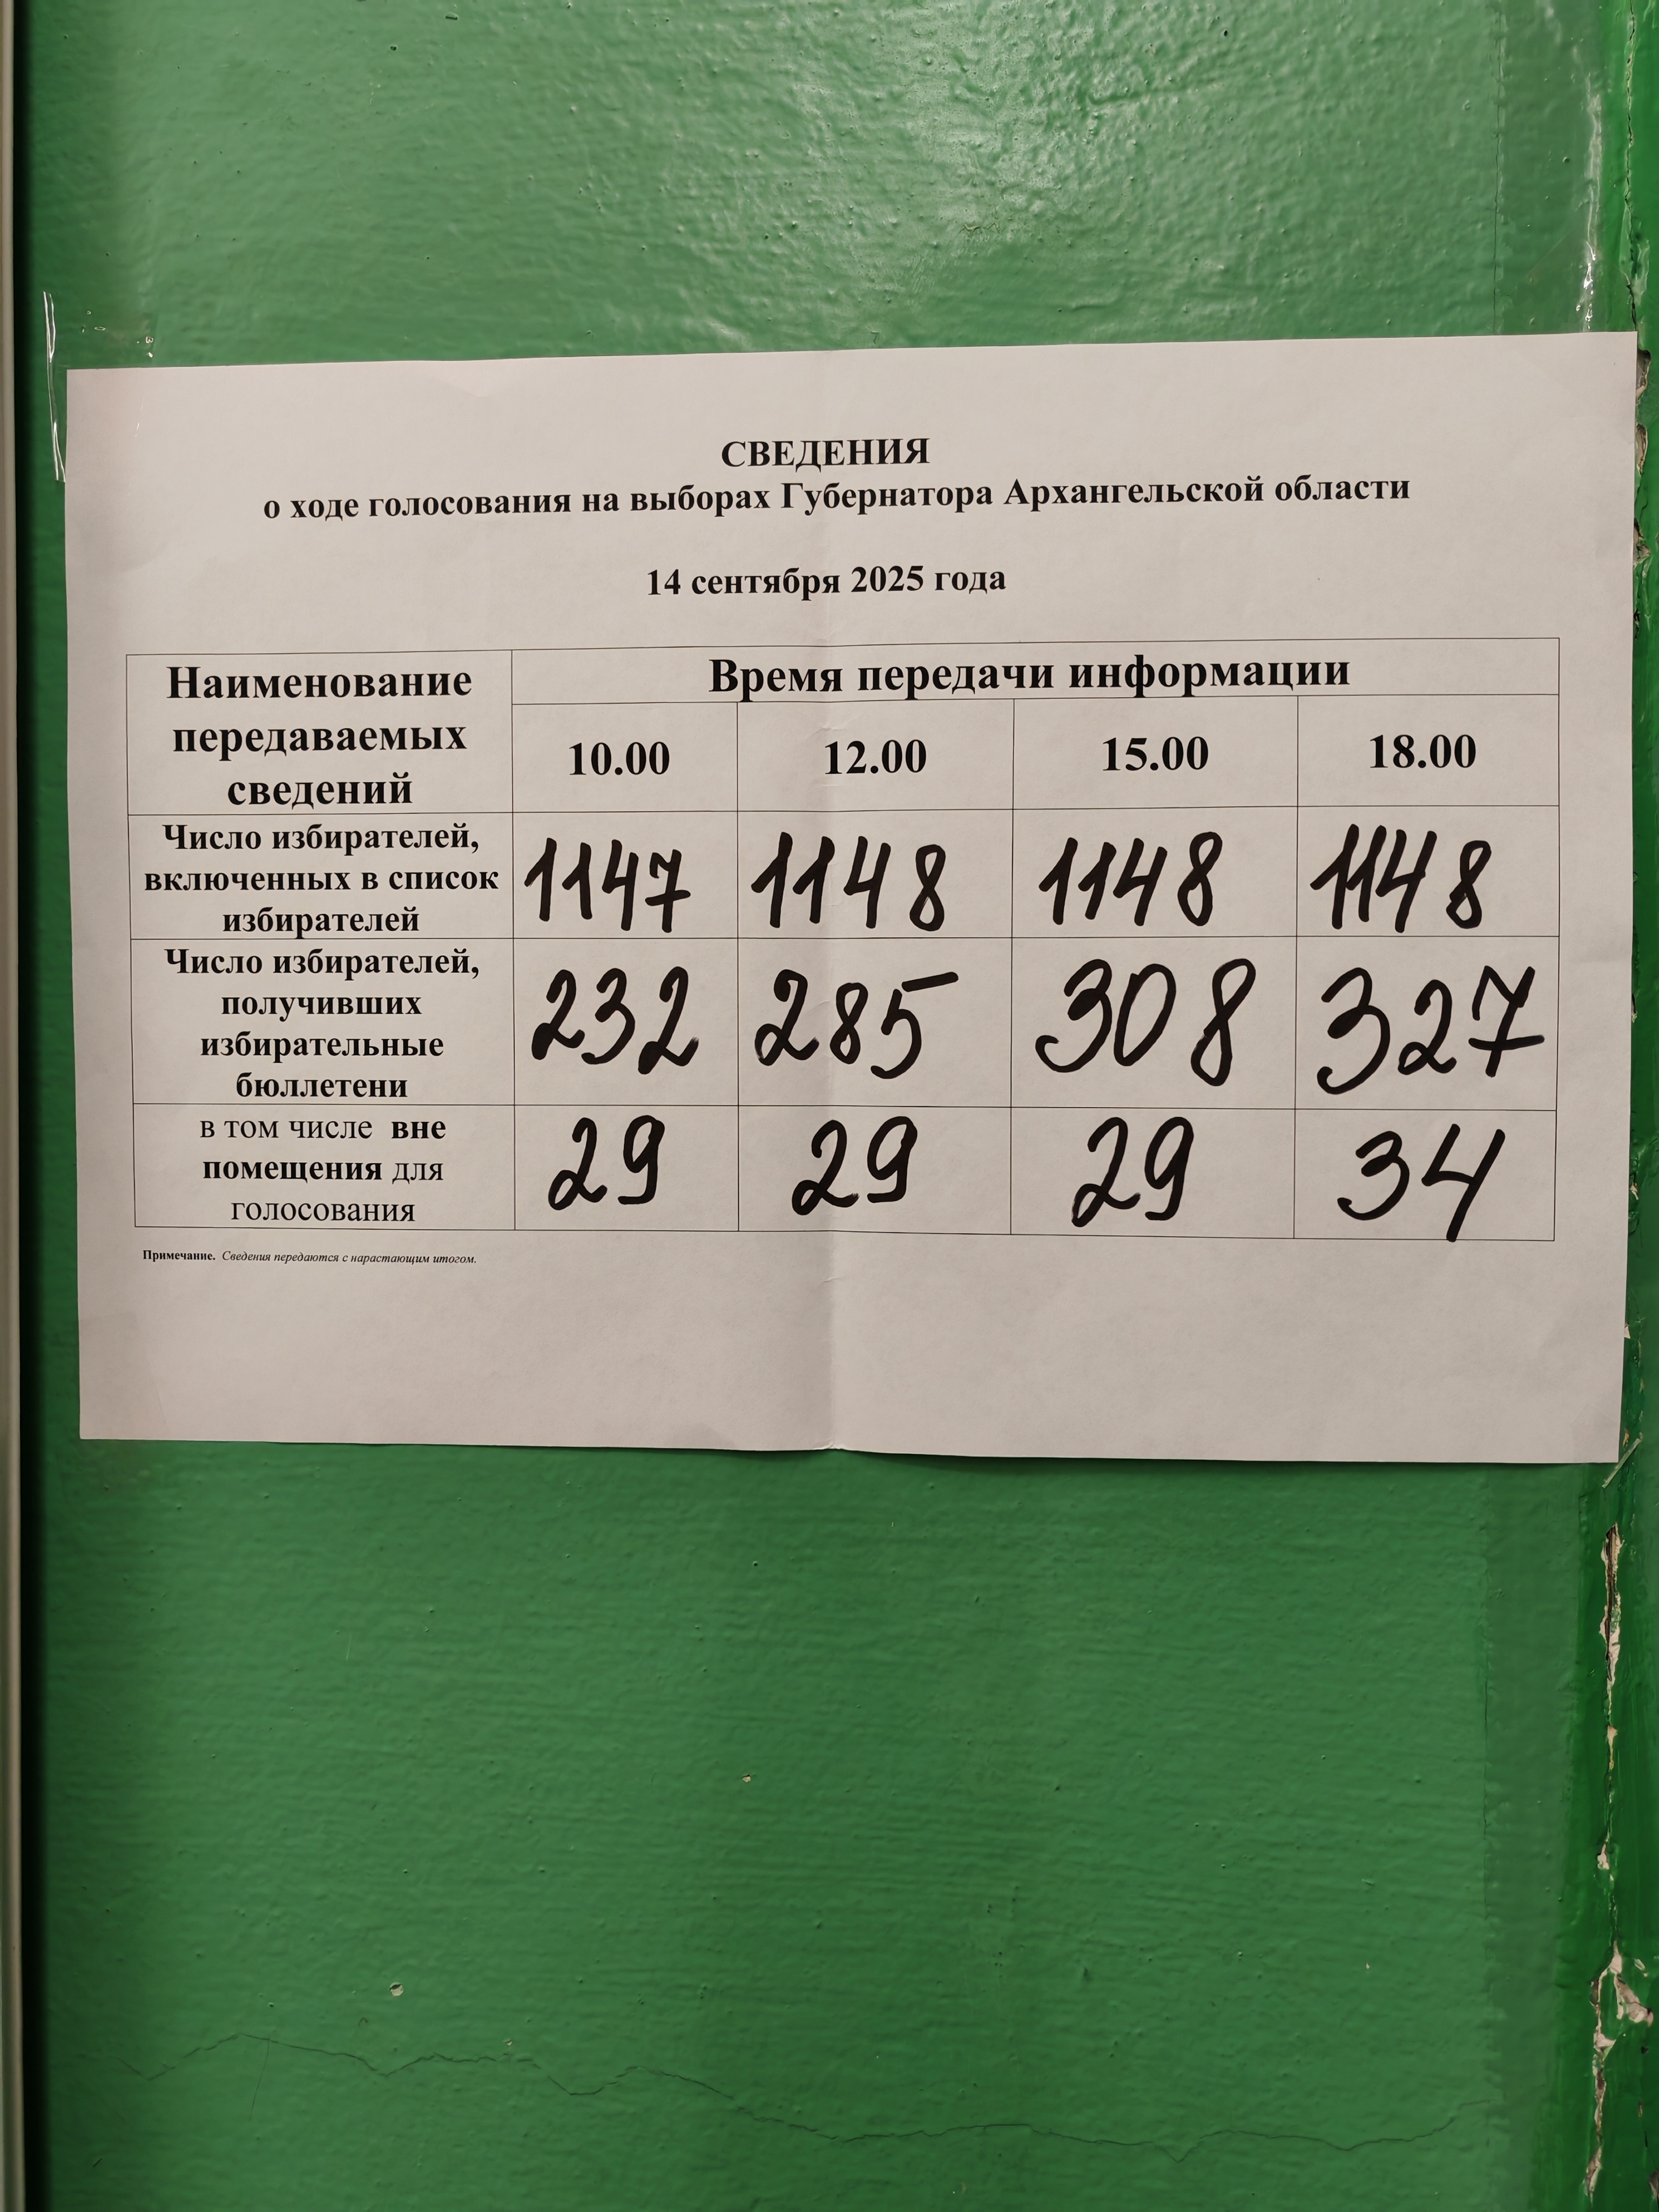 СВЕДЕНИЯ
о ходе голосования на выборах Губернатора Архангельской области
14 сентября 2025 года
Наименование
передаваемых
сведений
Время передачи информации
10.00 12.00 15.00 18.00
Число избирателей,
включенных в список
избирателей
1147 1148 1148 1148
Число избирателей,
получивших
избирательные
бюллетени
232 285 308 327
в том числе вне
помещения для
голосования
29 29 29 34
Примечание. Сведения передаются с нарастающим итогом.